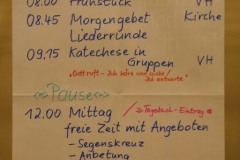 08.00 Frühstück VH
08.45 Morgengebet Kirche
Liederrunde
09.15 Katechese in VH
Gruppen
"Gott ruft - Ich höre und suche /
Ich antworte"
<=> Pause <=>
12.00 Mittag /> Tagebuch-Eintrag
freie Zeit mit Angeboten
- Segenskreuz
- Anbetung